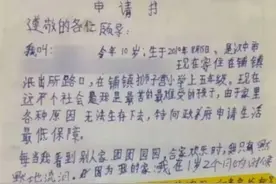 申请书
尊敬的各位领导:
我叫 今年10岁,生于20 年8月5日,是汉中市
现在家住在铺镇
派出所路口,在铺镇 小学上五年级。现在
这个社会最 是最苦的最难受的孩子,由于家里
各种原因 无法生存下去,特向政府申请生活
最低保障。
每当我看到别人家团团圆圆,合家欢乐时,我只有默
默地流泪。 因为我的家,我在1岁2个月的时候